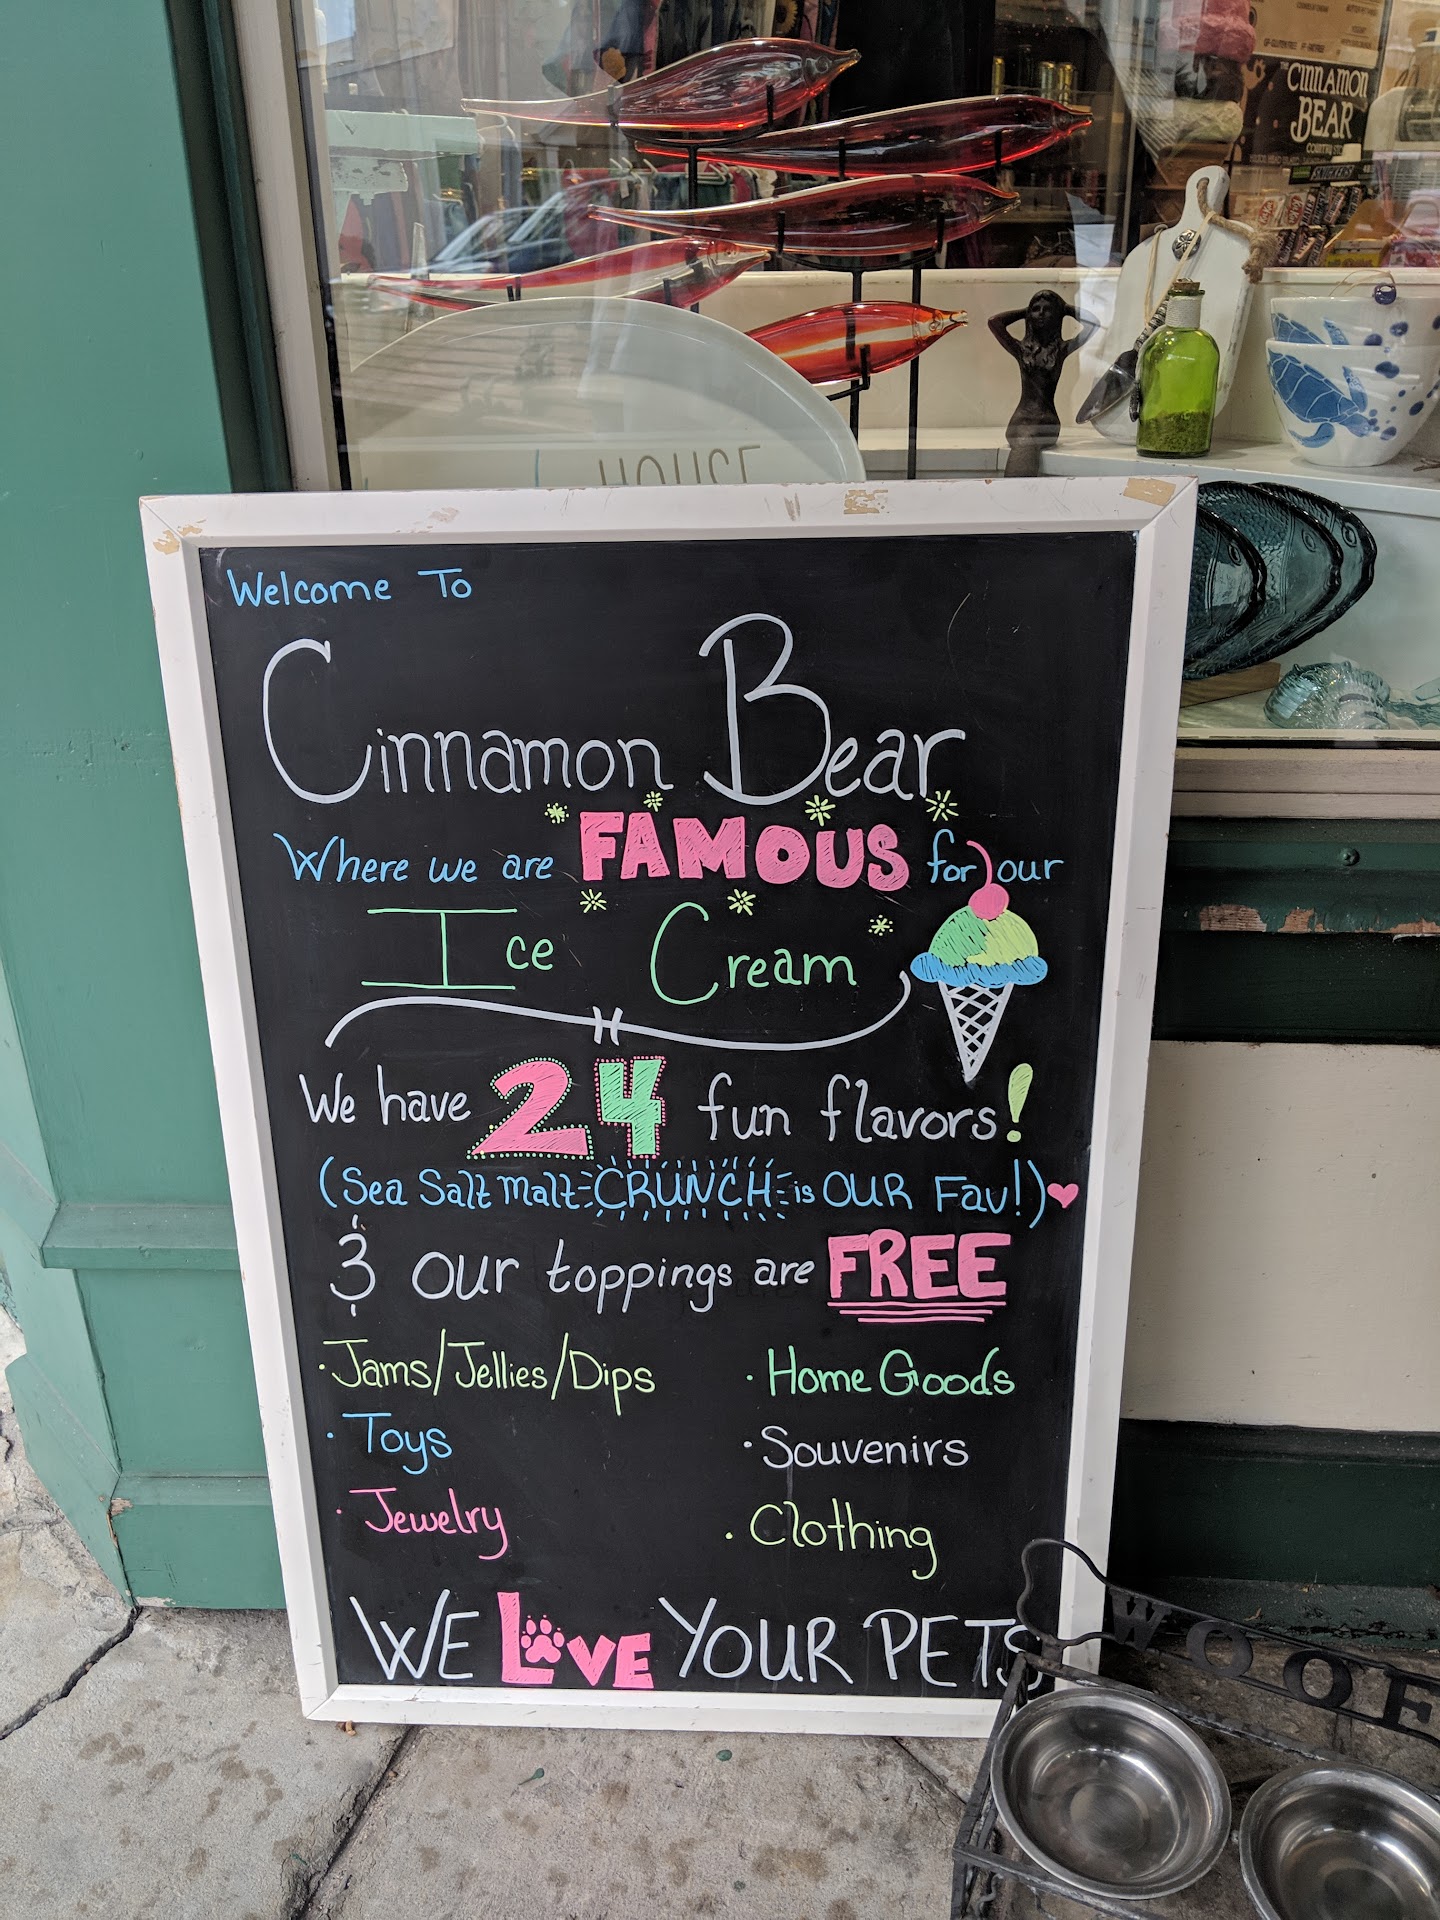 THE
CINNAMON
BEAR
COUNTRY
SNICKERS
HOUSE
Welcome To
Cinnamon Bear
Where we are FAMOUS for our
Ice Cream
We have 24 fun flavors!
(Sea Salt Malt CRUNCH is OUR Fav!)
& our toppings are FREE
· Jams/Jellies/Dips
· Home Goods
· Toys
· Souvenirs
· Jewelry
· Clothing
WE LOVE YOUR PETS
WOOF